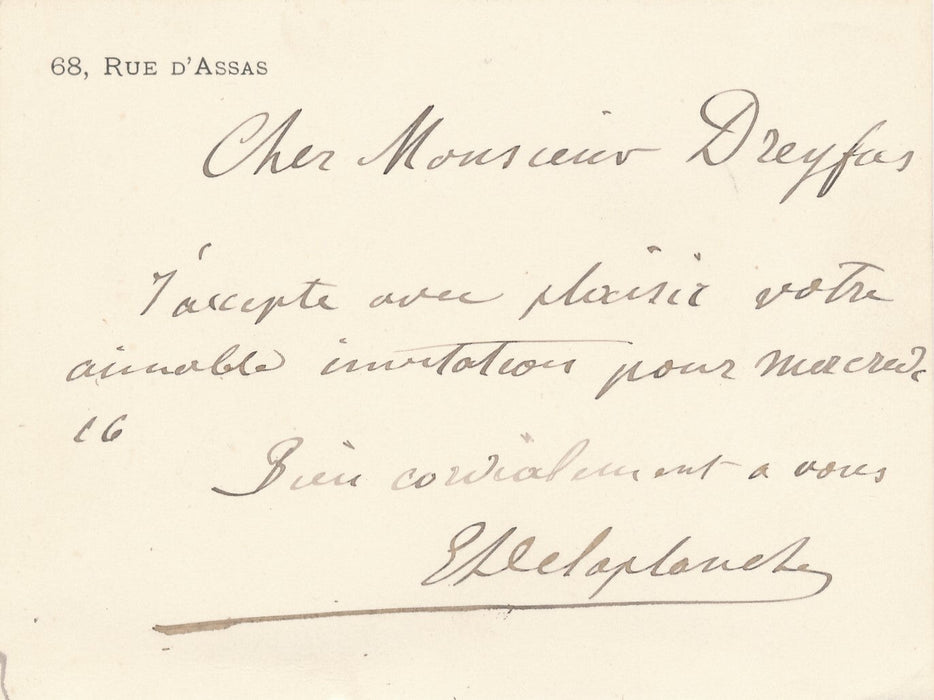 68, RUE D'ASSAS
Cher Monsieur Dreyfus
J'accepte avec plaisir votre
aimable invitation pour mercredi
16
Bien cordialement a vous
E Delaplanche